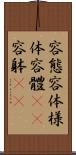 容態容体様
体容體
容躰